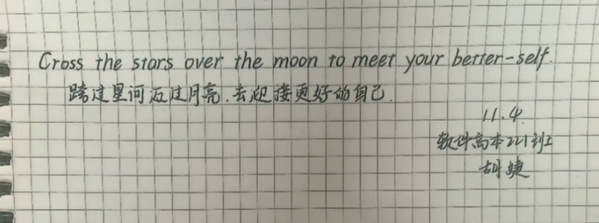 Cross the stars over the moon to meet your better-self.
跨过星河迈过月亮,去迎接更好的自己.
11.4
软件高本221班
胡婕